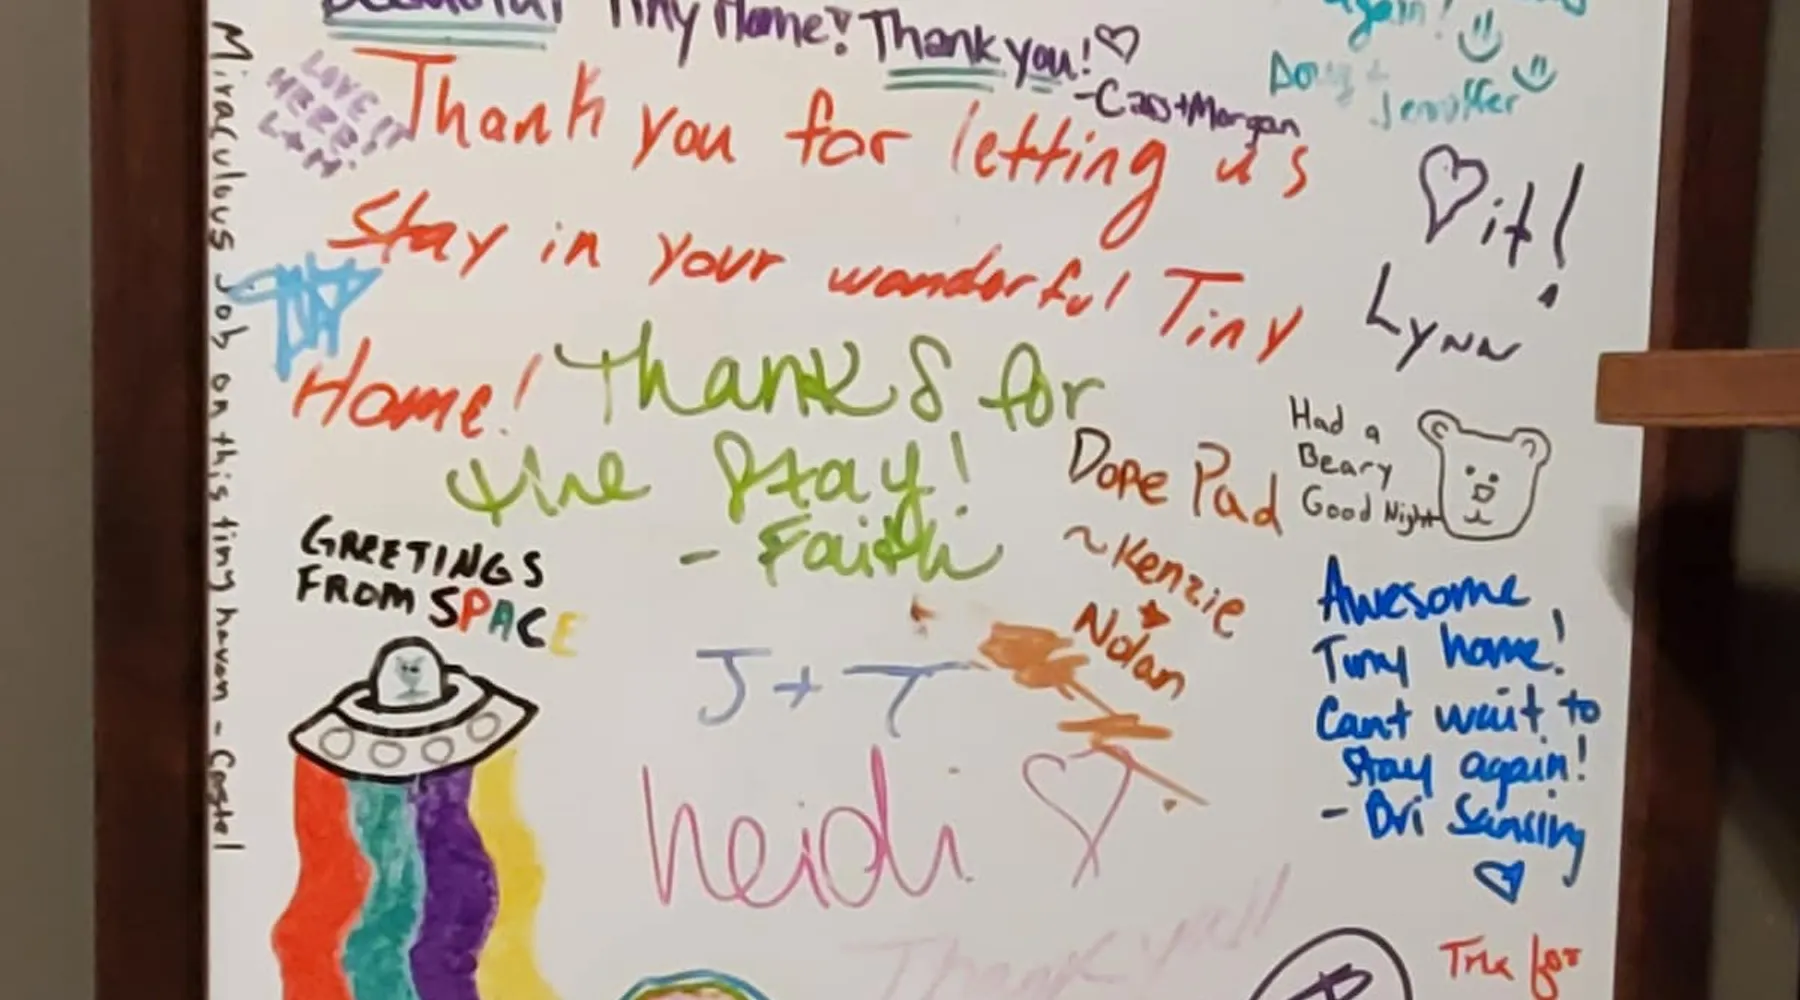 Beautiful Tiny Home! Thank you!
-Cas+Morgan
again!
Doug +
Jennifer
LOVE
HERE!!
L+M.
Thank you for letting us
Stay in your wonderful Tiny
Home!
♡ it!
Lynn
Miraculous Job on this tiny haven - Castel
Thanks for
the stay!
- Faith
Dope Pad
~Kenzie
+
Nolan
Had a
Beary
Good Night
GREETINGS
FROM SPACE
Awesome
Tiny home!
Cant wait to
stay again!
- Bri Sansing
J + T
heidi
Thank you!!
for